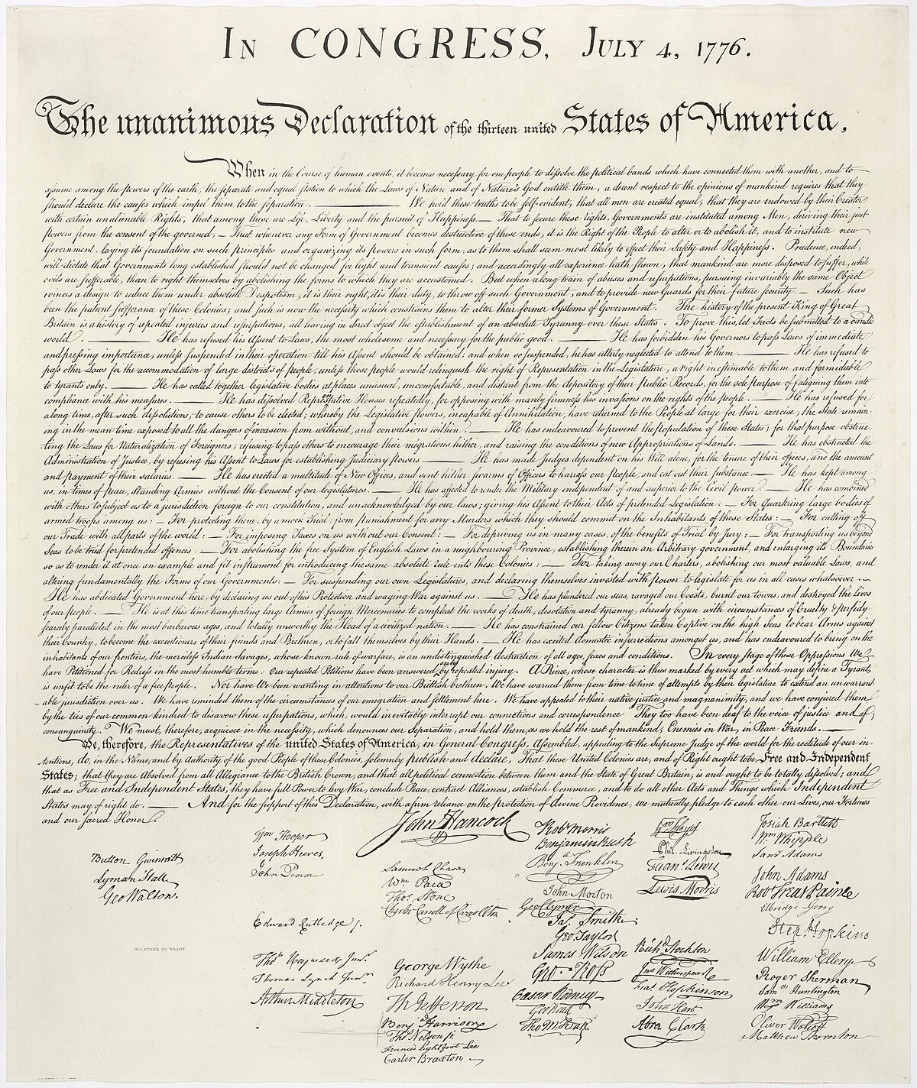 IN CONGRESS, JULY 4, 1776.
The unanimous Declaration of the thirteen united States of America,
When in the Course of human events, it becomes necessary for one people to dissolve the political bands which have connected them with another, and to
assume among the powers of the earth, the separate and equal station to which the Laws of Nature and of Nature's God entitle them, a decent respect to the opinions of mankind requires that they
should declare the causes which impel them to the separation. — We hold these truths to be self-evident, that all men are created equal, that they are endowed by their Creator
with certain unalienable Rights, that among these are Life, Liberty and the pursuit of Happiness.— That to secure these rights, Governments are instituted among Men, deriving their just
powers from the consent of the governed, — That whenever any Form of Government becomes destructive of these ends, it is the Right of the People to alter or to abolish it, and to institute new
Government, laying its foundation on such principles and organizing its powers in such form, as to them shall seem most likely to effect their Safety and Happiness. Prudence, indeed,
will dictate that Governments long established should not be changed for light and transient causes; and accordingly all experience hath shewn, that mankind are more disposed to suffer, while
evils are sufferable, than to right themselves by abolishing the forms to which they are accustomed. But when a long train of abuses and usurpations, pursuing invariably the same Object
evinces a design to reduce them under absolute Despotism, it is their right, it is their duty, to throw off such Government, and to provide new Guards for their future security. — Such has
been the patient sufferance of these Colonies; and such is now the necessity which constrains them to alter their former Systems of Government. The history of the present King of Great
Britain is a history of repeated injuries and usurpations, all having in direct object the establishment of an absolute Tyranny over these States. To prove this, let Facts be submitted to a candid
world. — He has refused his Assent to Laws, the most wholesome and necessary for the public good. — He has forbidden his Governors to pass Laws of immediate
and pressing importance, unless suspended in their operation till his Assent should be obtained; and when so suspended, he has utterly neglected to attend to them. — He has refused to
pass other Laws for the accommodation of large districts of people, unless those people would relinquish the right of Representation in the Legislature, a right inestimable to them and formidable
to tyrants only. — He has called together legislative bodies at places unusual, uncomfortable, and distant from the depository of their public Records, for the sole purpose of fatiguing them into
compliance with his measures. — He has dissolved Representative Houses repeatedly, for opposing with manly firmness his invasions on the rights of the people. — He has refused for
a long time, after such dissolutions, to cause others to be elected; whereby the Legislative powers, incapable of Annihilation, have returned to the People at large for their exercise; the State remain-
ing in the mean time exposed to all the dangers of invasion from without, and convulsions within. — He has endeavoured to prevent the population of these States; for that purpose obstruc-
ting the Laws for Naturalization of Foreigners; refusing to pass others to encourage their migrations hither, and raising the conditions of new Appropriations of Lands. — He has obstructed the
Administration of Justice, by refusing his Assent to Laws for establishing Judiciary powers. — He has made Judges dependent on his Will alone, for the tenure of their offices, and the amount
and payment of their salaries. — He has erected a multitude of New Offices, and sent hither swarms of Officers to harrass our People, and eat out their substance. — He has kept among
us, in times of peace, Standing Armies without the Consent of our legislatures. — He has affected to render the Military independent of and superior to the Civil power. — He has combined
with others to subject us to a jurisdiction foreign to our constitution, and unacknowledged by our laws; giving his Assent to their Acts of pretended Legislation: — For Quartering large bodies of
armed troops among us: — For protecting them, by a mock Trial, from punishment for any Murders which they should commit on the Inhabitants of these States: — For cutting off
our Trade with all parts of the world: — For imposing Taxes on us without our Consent: — For depriving us in many cases, of the benefits of Trial by jury: — For transporting us beyond
Seas to be tried for pretended offences: — For abolishing the free System of English Laws in a neighbouring Province, establishing therein an Arbitrary government, and enlarging its Boundaries
so as to render it at once an example and fit instrument for introducing the same absolute rule into these Colonies: — For taking away our Charters, abolishing our most valuable Laws, and
altering fundamentally the Forms of our Governments: — For suspending our own Legislatures, and declaring themselves invested with power to legislate for us in all cases whatsoever. —
He has abdicated Government here, by declaring us out of his Protection and waging War against us. — He has plundered our seas, ravaged our Coasts, burnt our towns, and destroyed the lives
of our people. — He is at this time transporting large Armies of foreign Mercenaries to compleat the works of death, desolation and tyranny, already begun with circumstances of Cruelty & perfidy
scarcely paralleled in the most barbarous ages, and totally unworthy the Head of a civilized nation. — He has constrained our fellow Citizens taken Captive on the high Seas to bear Arms against
their Country, to become the executioners of their friends and Brethren, or to fall themselves by their Hands. — He has excited domestic insurrections amongst us, and has endeavoured to bring on the
inhabitants of our frontiers, the merciless Indian Savages, whose known rule of warfare, is an undistinguished destruction of all ages, sexes and conditions. In every stage of these Oppressions We
have Petitioned for Redress in the most humble terms: Our repeated Petitions have been answered only by repeated injury. A Prince, whose character is thus marked by every act which may define a Tyrant,
is unfit to be the ruler of a free people. Nor have We been wanting in attentions to our Brittish brethren. We have warned them from time to time of attempts by their legislature to extend an unwarrant-
able jurisdiction over us. We have reminded them of the circumstances of our emigration and settlement here. We have appealed to their native justice and magnanimity, and we have conjured them
by the ties of our common kindred to disavow these usurpations, which, would inevitably interrupt our connections and correspondence. They too have been deaf to the voice of justice and of
consanguinity. We must, therefore, acquiesce in the necessity, which denounces our Separation, and hold them, as we hold the rest of mankind, Enemies in War, in Peace Friends. —
We, therefore, the Representatives of the united States of America, in General Congress, Assembled, appealing to the Supreme Judge of the world for the rectitude of our in-
tentions, do, in the Name, and by Authority of the good People of these Colonies, solemnly publish and declare, That these United Colonies are, and of Right ought to be Free and Independent
States; that they are Absolved from all Allegiance to the British Crown, and that all political connection between them and the State of Great Britain, is and ought to be totally dissolved; and
that as Free and Independent States, they have full Power to levy War, conclude Peace, contract Alliances, establish Commerce, and to do all other Acts and Things which Independent
States may of right do. — And for the support of this Declaration, with a firm reliance on the protection of divine Providence, we mutually pledge to each other our Lives, our Fortunes
and our sacred Honor.
Button Gwinnett
Lyman Hall
Geo Walton.
Wm Hooper
Joseph Hewes,
John Penn
Edward Rutledge /.
Thos Heyward Junr.
Thomas Lynch Junr.
Arthur Middleton
John Hancock
Samuel Chase
Wm Paca
Thos Stone
Charles Carroll of Carrollton
George Wythe
Richard Henry Lee
Th Jefferson
Benj Harrison
Thos Nelson jr.
Francis Lightfoot Lee
Carter Braxton
Robt Morris
Benjamin Rush
Benj. Franklin
John Morton
Geo Clymer
Jas. Smith
Geo. Taylor
James Wilson
Geo. Ross
Caesar Rodney
Geo Read
Tho M:Kean
Wm Floyd
Phil. Livingston
Frans. Lewis
Lewis Morris
Richd. Stockton
Jno Witherspoon
Fras. Hopkinson
John Hart
Abra Clark
Josiah Bartlett
Wm. Whipple
Saml Adams
John Adams
Robt Treat Paine
Elbridge Gerry
Step. Hopkins
William Ellery
Roger Sherman
Saml Huntington
Wm. Williams
Oliver Wolcott
Matthew Thornton